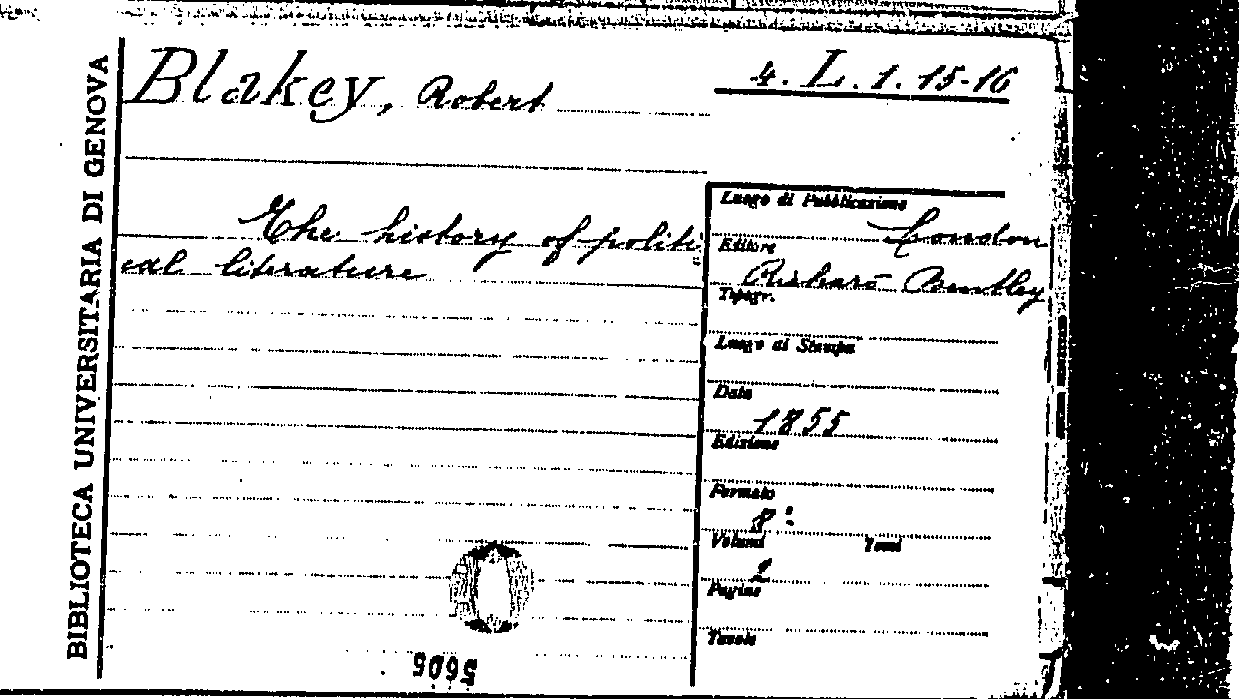 BIBLIOTECA UNIVERSITARIA DI GENOVA
Blakey, Robert
4. L. 1. 15-16
The history of politi
cal literature
Luogo di Pubblicazione
London
Editore
Richard Bentley
Tipogr.
Luogo di Stampa
Data
1855
Edizione
Formato
8°
Volumi Tomi
2
Pagine
Tavole
5605